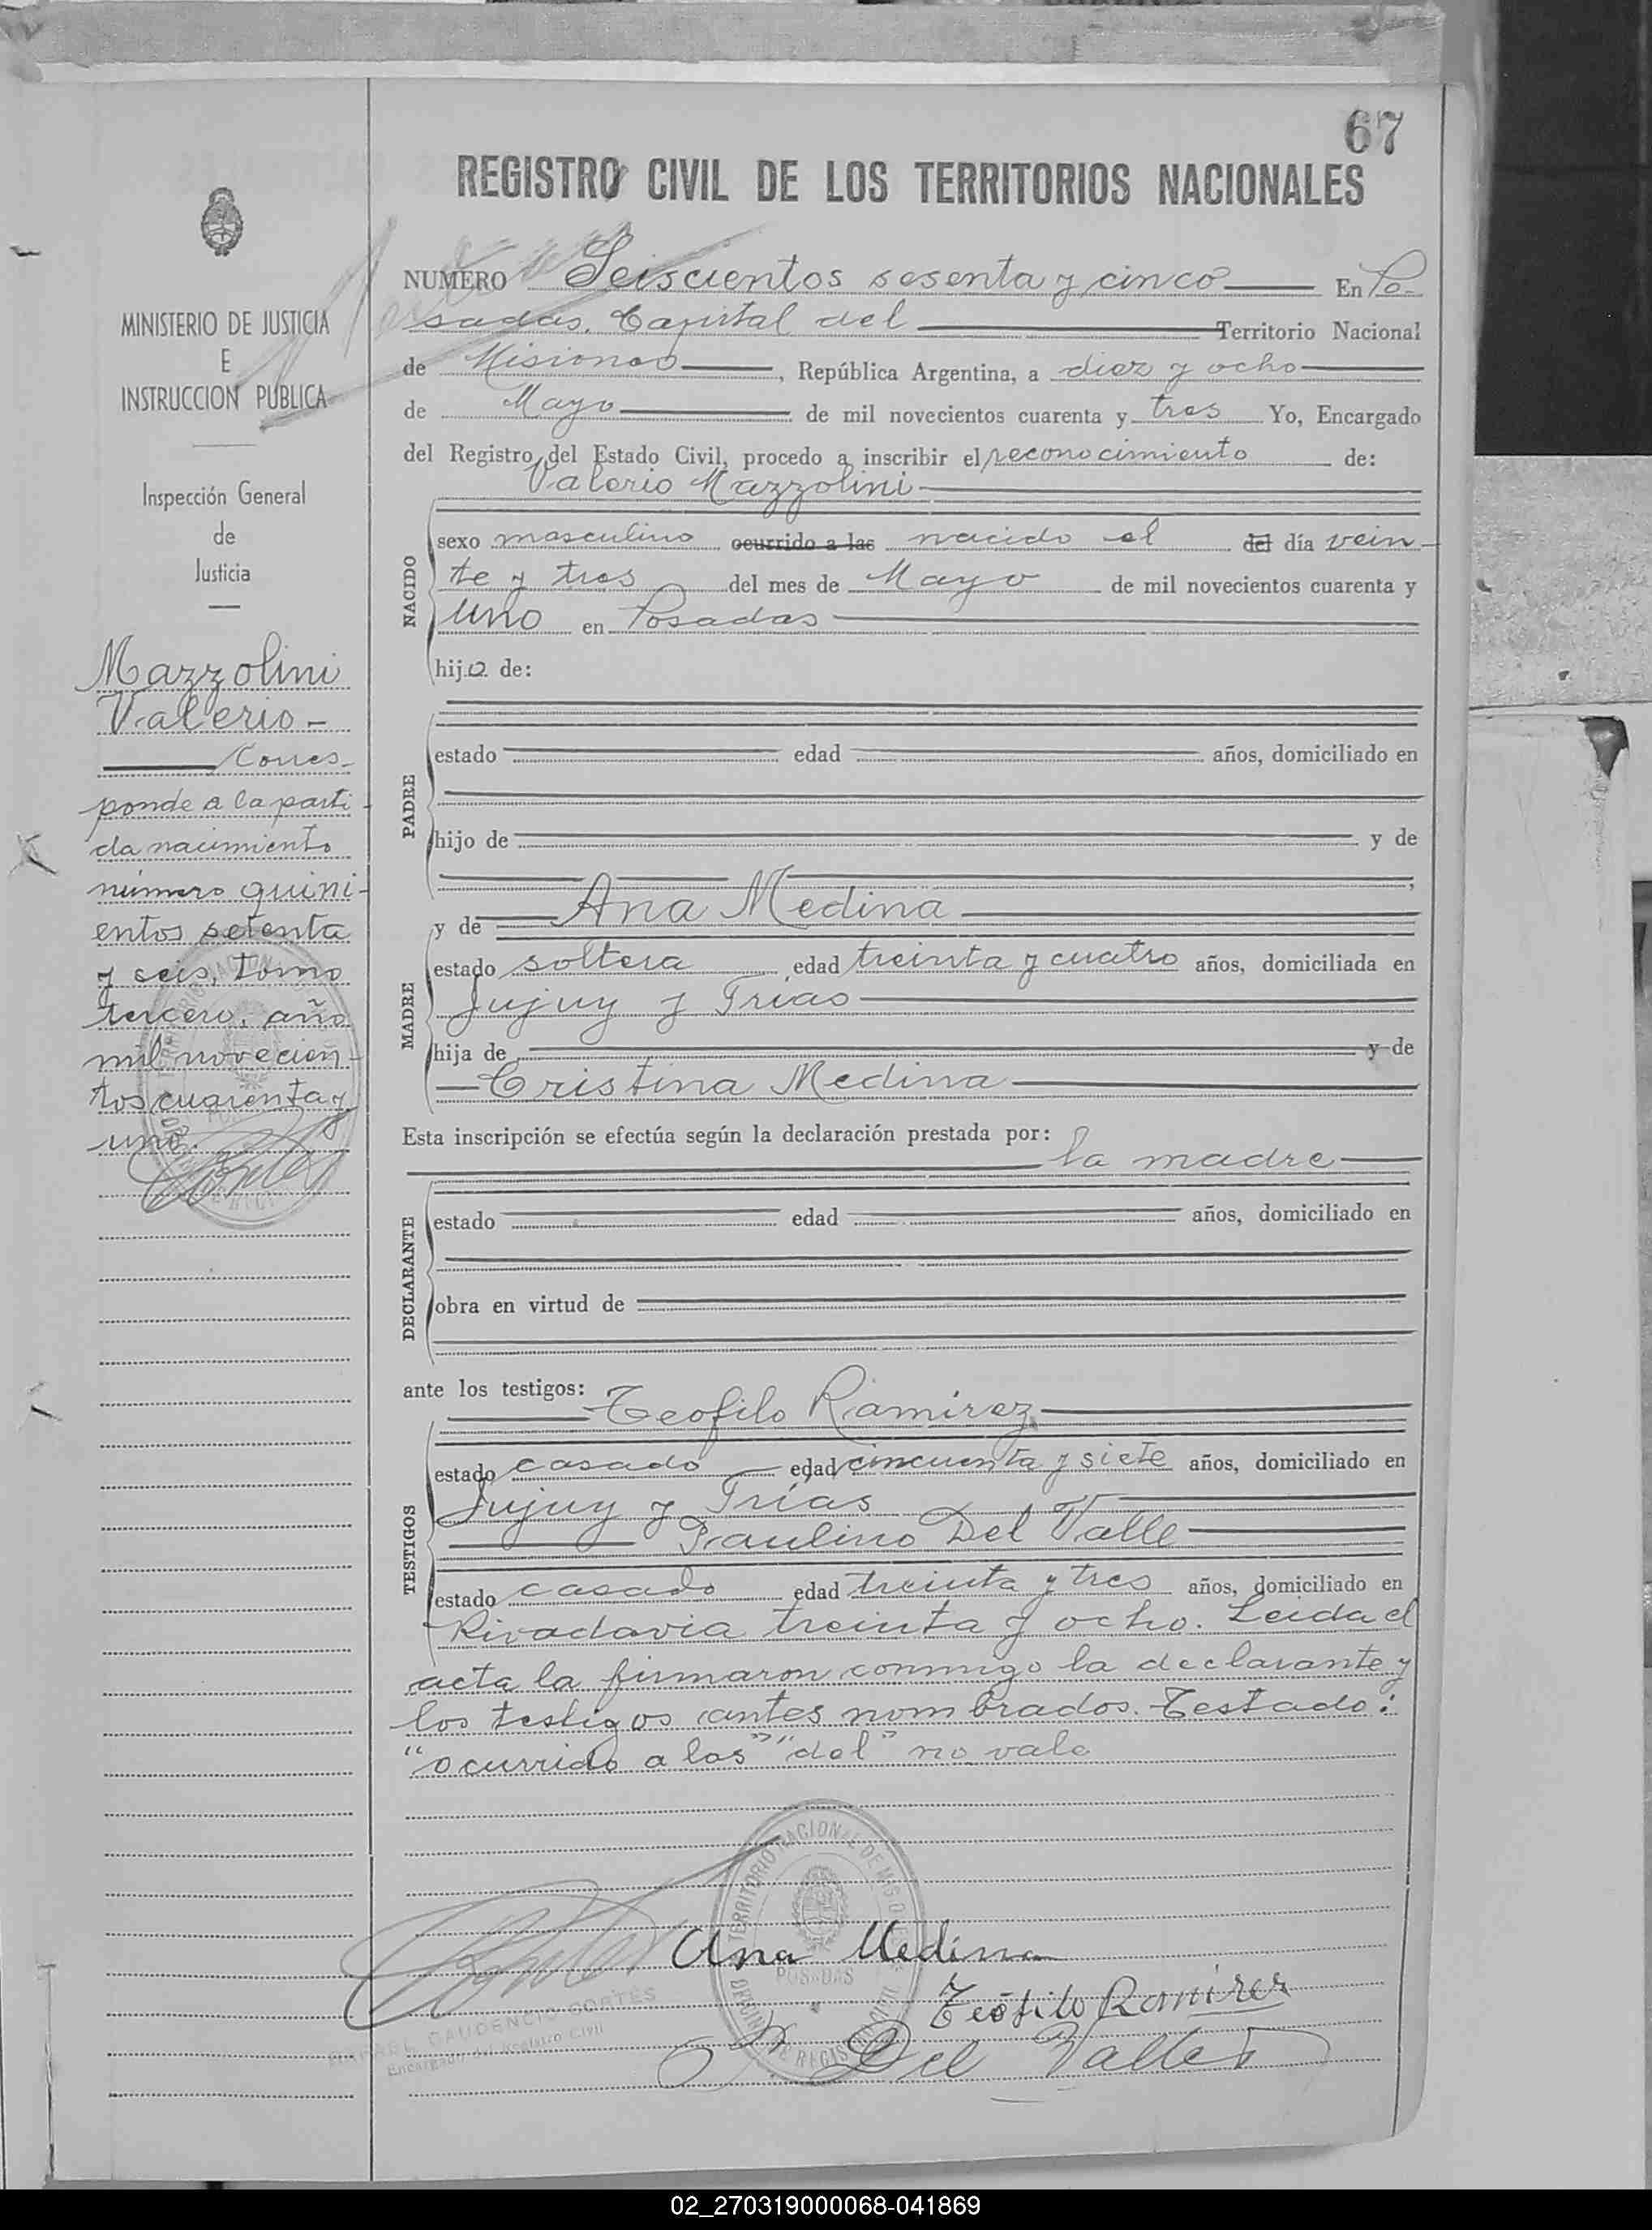 67
REGISTRO CIVIL DE LOS TERRITORIOS NACIONALES
MINISTERIO DE JUSTICIA
E
INSTRUCCION PUBLICA
Inspección General
de
Justicia
Mazzolini
Valerio -
Corres-
ponde a la parti-
da nacimiento
número quini-
entos setenta
y seis, tomo
tercero, año
mil novecien-
tos cuarenta y
uno.
NUMERO Seiscientos sesenta y cinco En Po-
sadas, Capital del Territorio Nacional
de Misiones, República Argentina, a diez y ocho
de Mayo de mil novecientos cuarenta y tres Yo, Encargado
del Registro del Estado Civil, procedo a inscribir el reconocimiento de:
Valerio Mazzolini
NACIDO
sexo masculino ocurrido a las nacido el del día vein-
te y tres del mes de Mayo de mil novecientos cuarenta y
uno en Posadas
hijo de:
PADRE
estado edad años, domiciliado en
hijo de y de
y de Ana Medina
MADRE
estado soltera edad treinta y cuatro años, domiciliada en
Jujuy y Trias
hija de y de
Cristina Medina
Esta inscripción se efectúa según la declaración prestada por:
la madre
DECLARANTE
estado edad años, domiciliado en
obra en virtud de
ante los testigos:
Teofilo Ramirez
TESTIGOS
estado casado edad cincuenta y siete años, domiciliado en
Jujuy y Trías
Paulino Del Valle
estado casado edad treinta y tres años, domiciliado en
Rivadavia treinta y ocho. Leida el
acta la firmaron conmigo la declarante y
los testigos antes nombrados. Testado:
"ocurrido a las" "del" no vale
TERRITORIO NACIONAL DE MISIONES
POSADAS
OFICINA DE REGISTRO CIVIL
Ana Medina
Teófilo Ramirez
Del Valle
RAFAEL GAUDENCIO CORTES
Encargado del Registro Civil
02_270319000068-041869